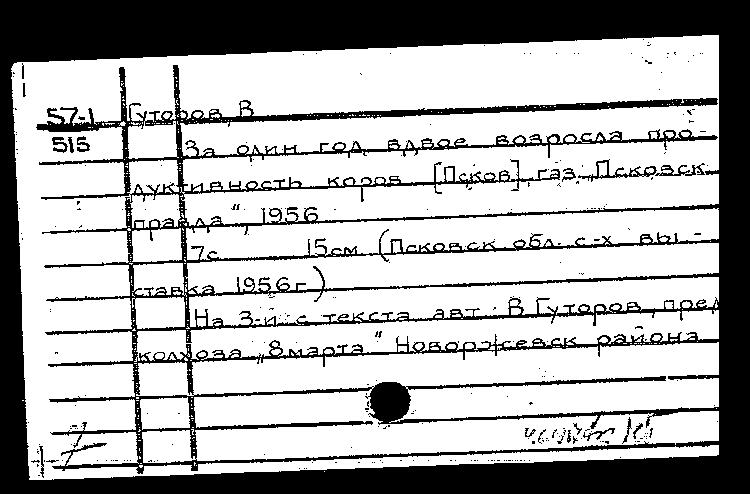 57-1 Гуторов, В
515 За один год вдвое возросла про-
дуктивность коров [Псков], газ. „Псковск.
правда", 1956
7с 15см (Псковск обл. с-х вы-
ставка 1956г)
На 3-й с текста авт: В Гуторов, пред
колхоза „8марта" Новоржевск района
7